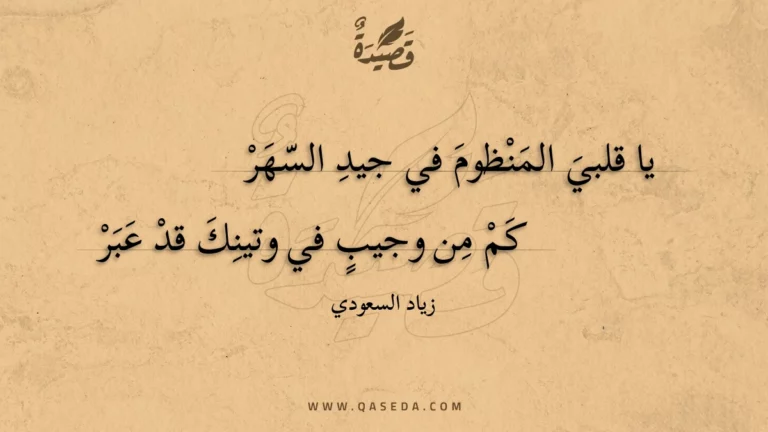 قَصِيدَةٌ
يا قلبيَ المَنْظومَ في جيدِ السّهَرْ
كَمْ مِن وجيبٍ في وتينِكَ قدْ عَبَرْ
زياد السعودي
WWW.QASEDA.COM